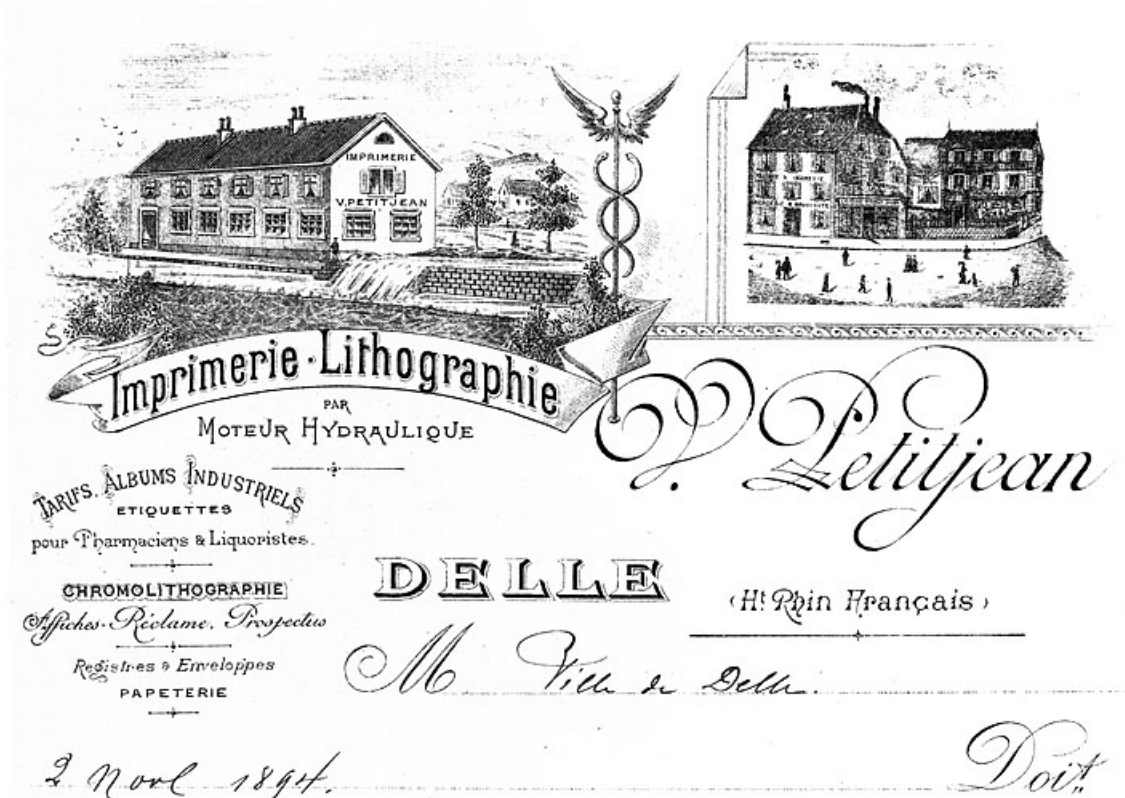 IMPRIMERIE
V. PETITJEAN
Imprimerie · Lithographie
PAR
MOTEUR HYDRAULIQUE
V. Petitjean
TARIFS, ALBUMS INDUSTRIELS
ETIQUETTES
pour Pharmaciens & Liquoristes.
CHROMOLITHOGRAPHIE
Affiches-Réclame, Prospectus
Registres & Enveloppes
PAPETERIE
DELLE
(Ht Rhin Français)
M Ville de Delle.
2 Nov 1894.
Doit